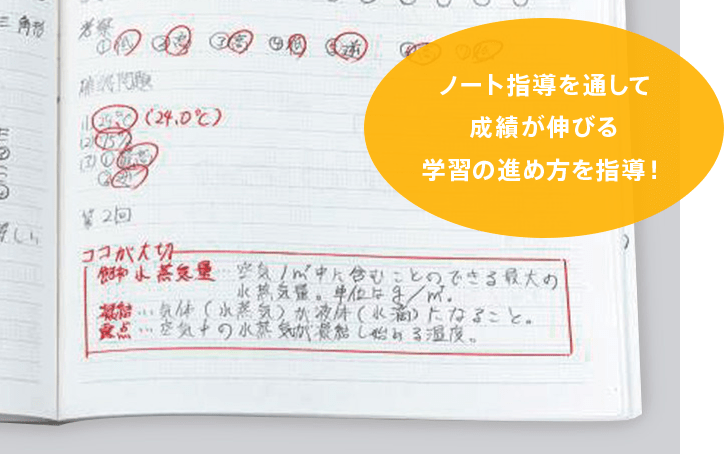 三角形
考察
①低 ②高 ③高 ④低 ⑤逆
ノート指導を通して
成績が伸びる
学習の進め方を指導！
練習問題
(1) 24℃ (24.0℃)
(2) 75%
(3) ①
②逆
第2回
ココが大切
飽和水蒸気量…空気1m³中に含むことのできる最大の
水蒸気量。単位はg/m³。
凝結…気体(水蒸気)が液体(水滴)になること。
露点…空気中の水蒸気が凝結し始める温度。